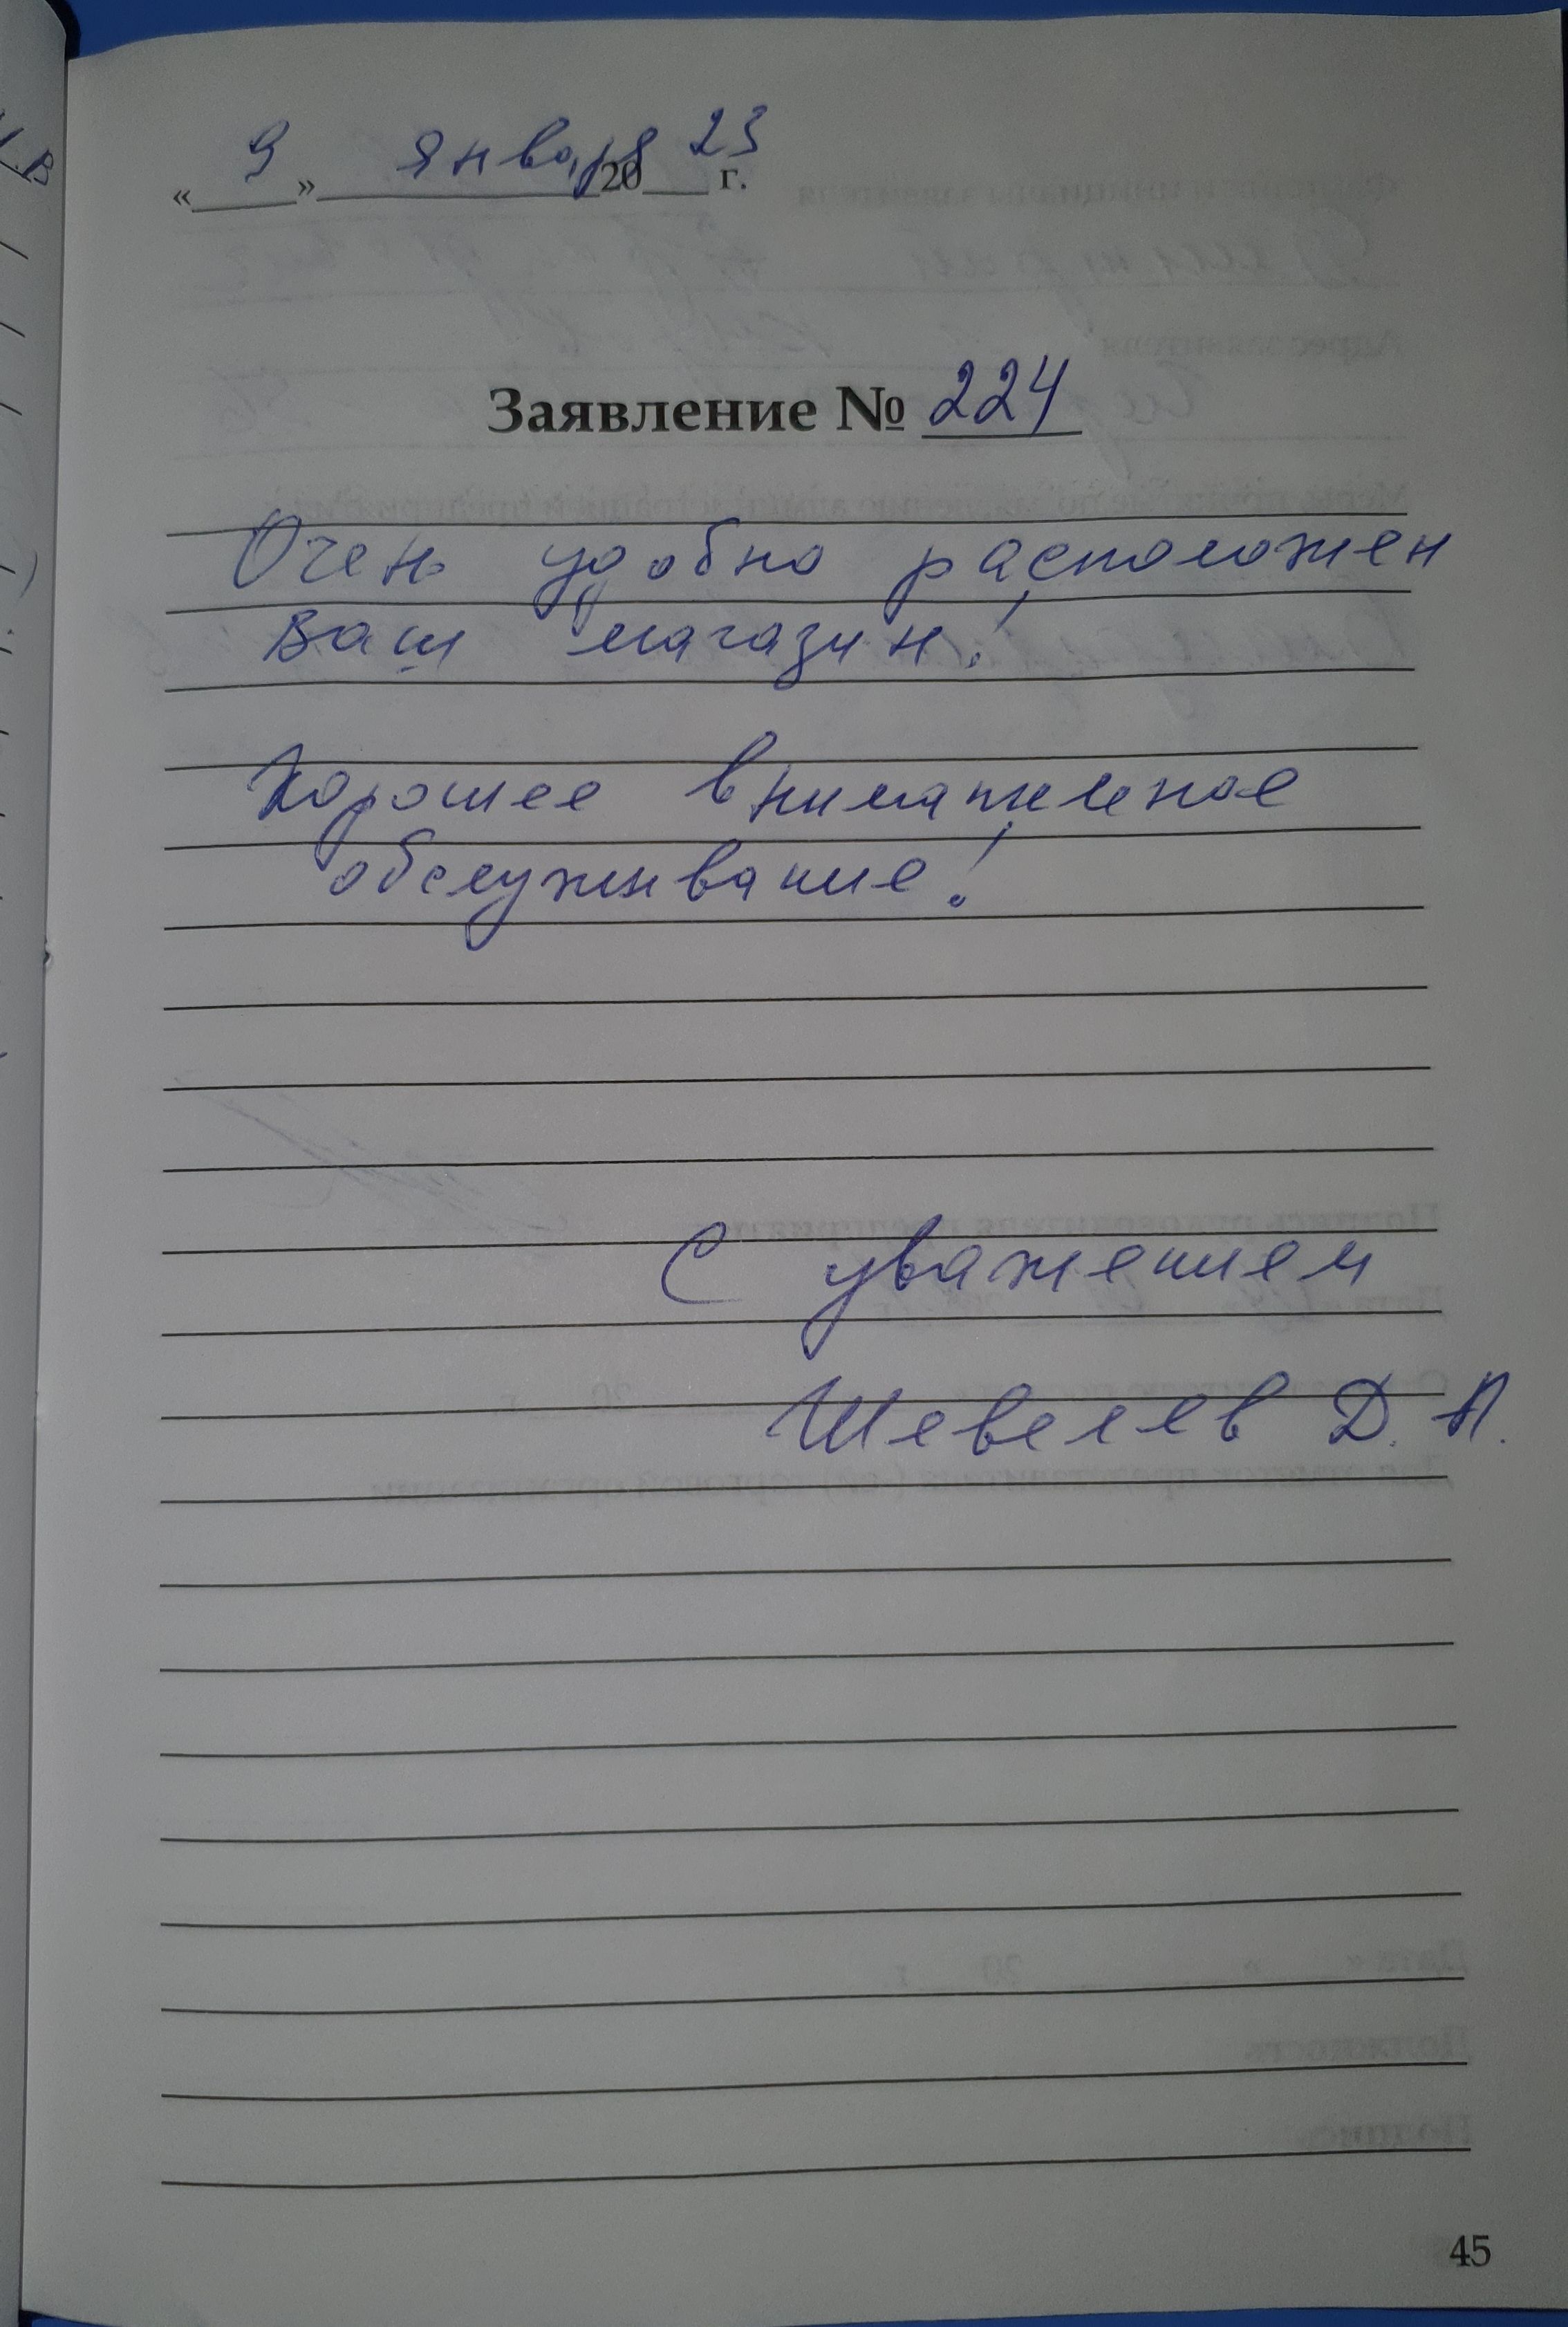 « 9 » января 2023 г.
Заявление № 224
Очень удобно расположен
Ваш магазин!
Хорошее внимательное
обслуживание!
С уважением
Шевелев Д. А.
45